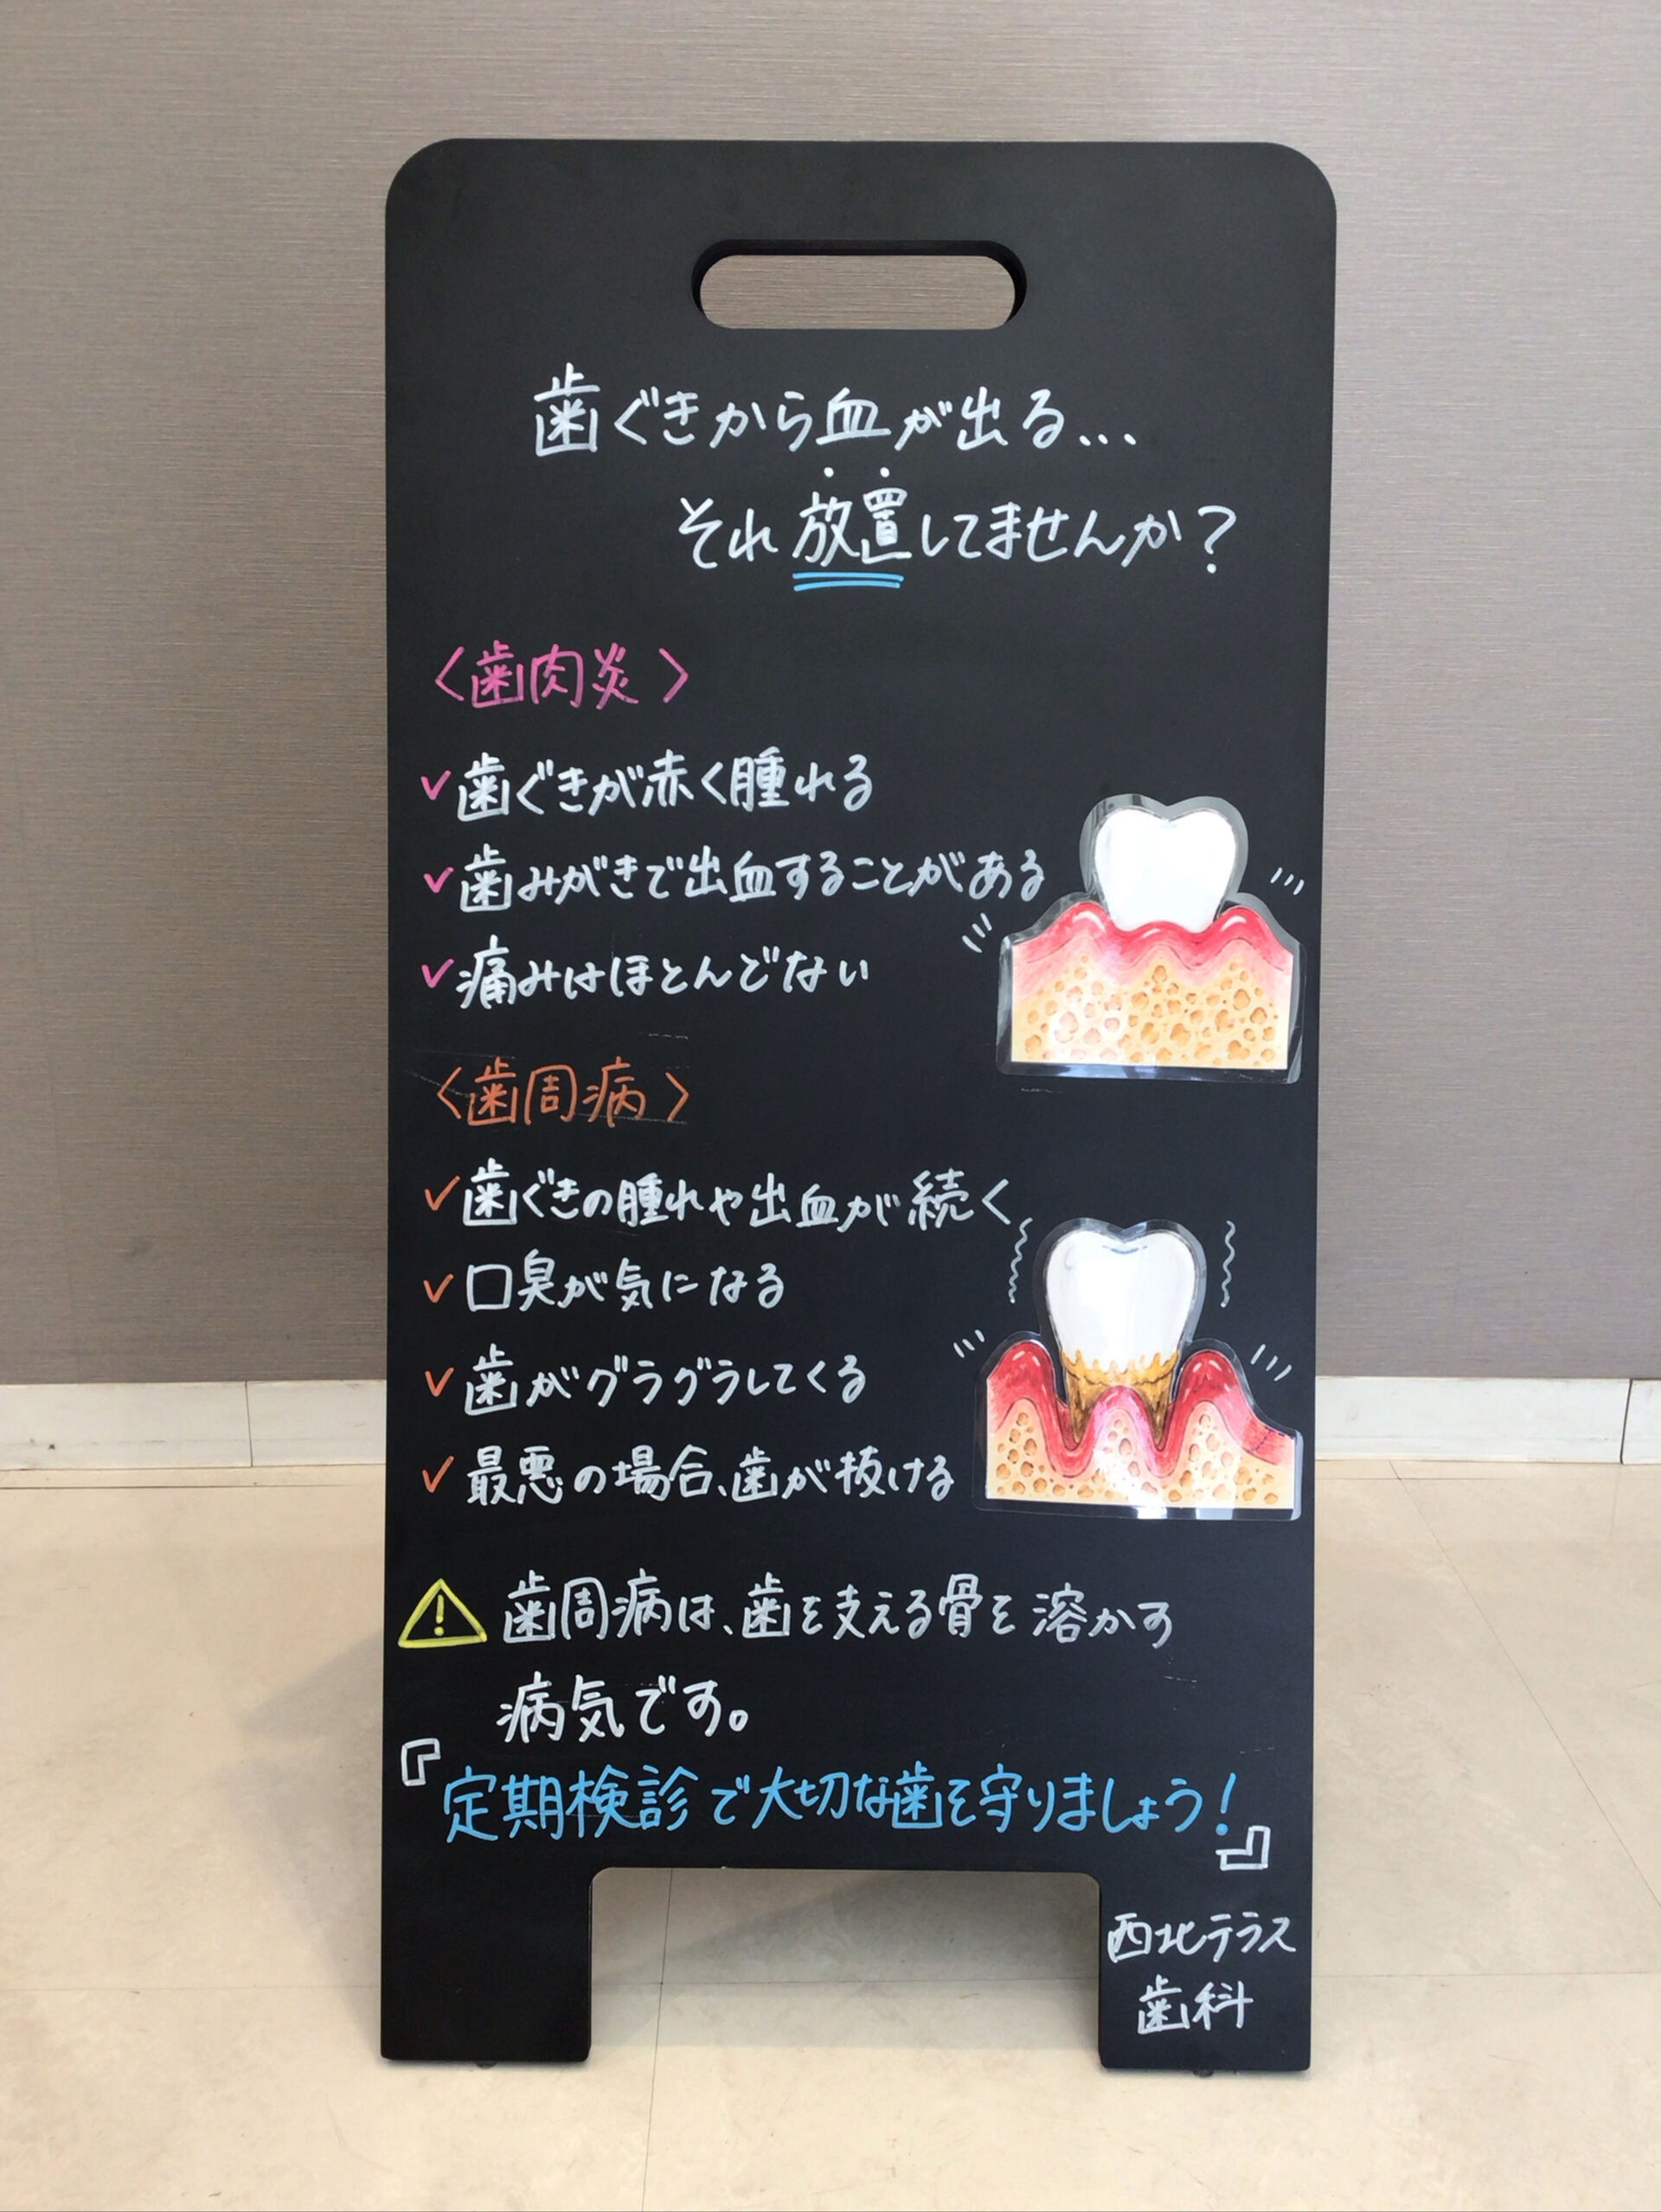 歯ぐきから血が出る...
それ放置してませんか？
〈歯肉炎〉
✓歯ぐきが赤く腫れる
✓歯みがきで出血することがある
✓痛みはほとんどない
〈歯周病〉
✓歯ぐきの腫れや出血が続く
✓口臭が気になる
✓歯がグラグラしてくる
✓最悪の場合、歯が抜ける
⚠歯周病は、歯を支える骨を溶かす
病気です。
『定期検診で大切な歯を守りましょう!』
西北テラス
歯科